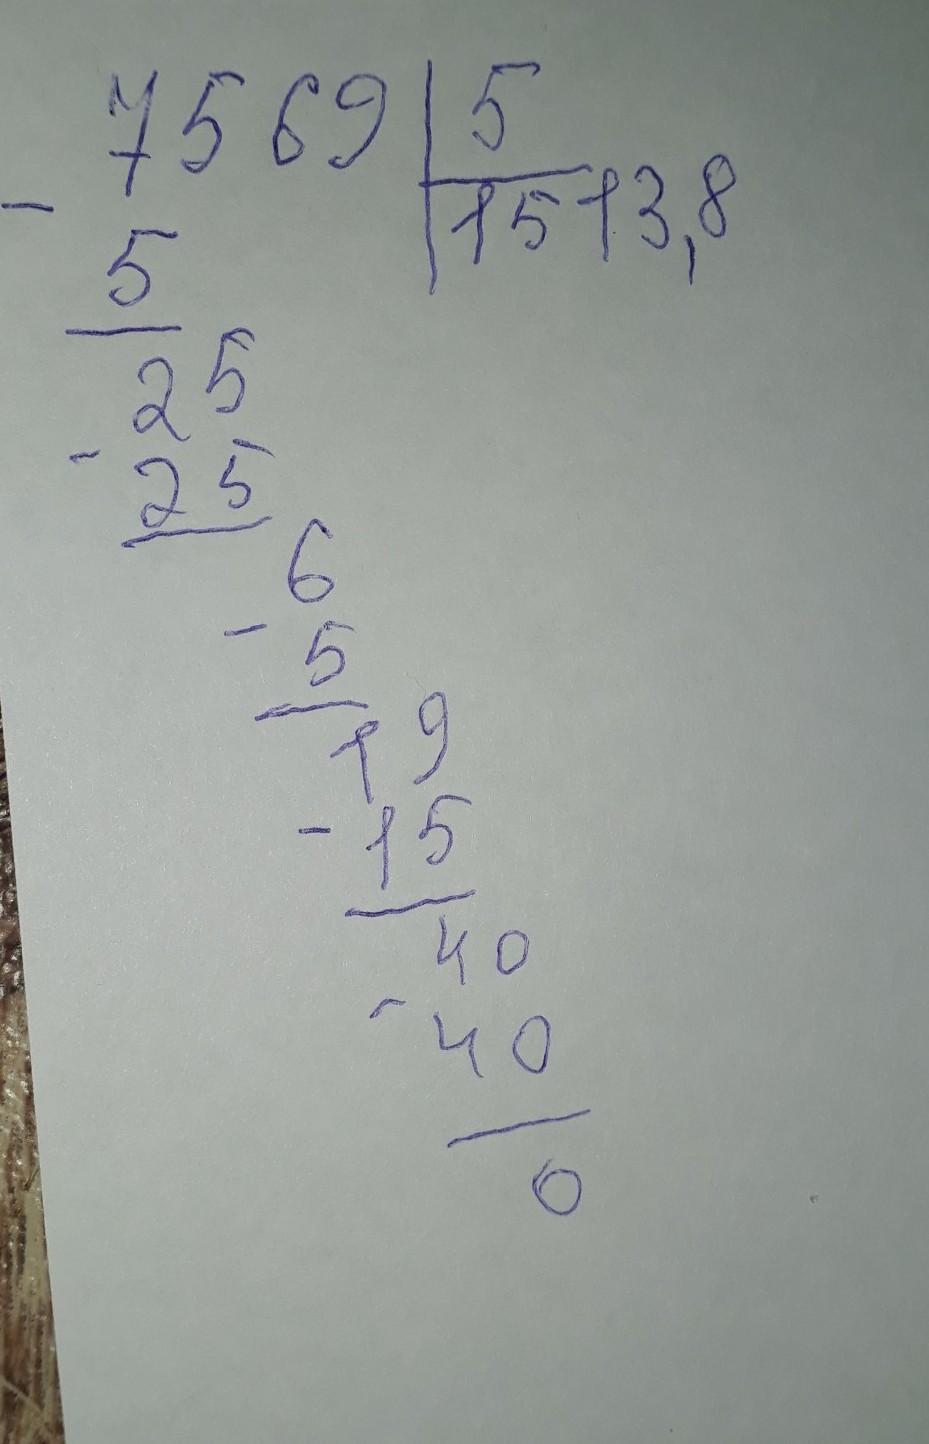 7569 5
- 1513,8
5
25
- 25
6
- 5
19
- 15
40
- 40
0